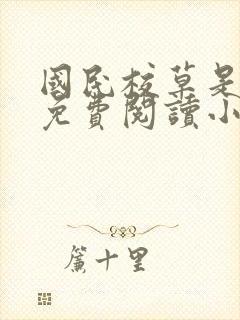 國民校草是
免費閱讀小
簾十里